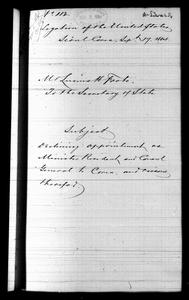 No 112.
Legation of the United States,
Seoul Corea, Sept. 17. 1884
Mr Lucius H. Foote
To the Secretary of State
Subject
Declining appointment as
Minister Resident and Consul
General to Corea, and reasons
therefor.